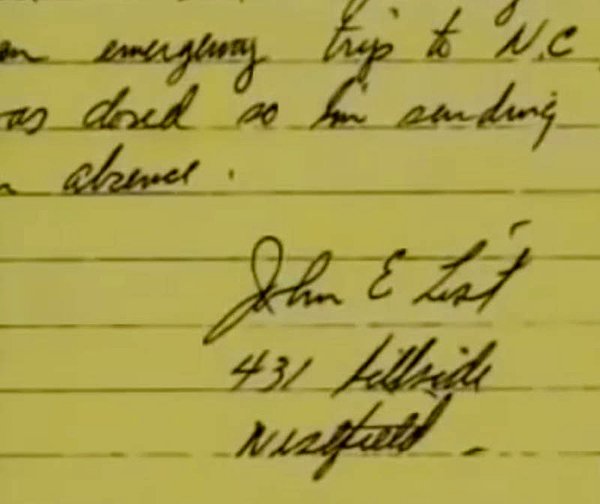 emergency trip to N.C
was closed so I'm sending
absence.
John E List
431 Hillside
Westfield